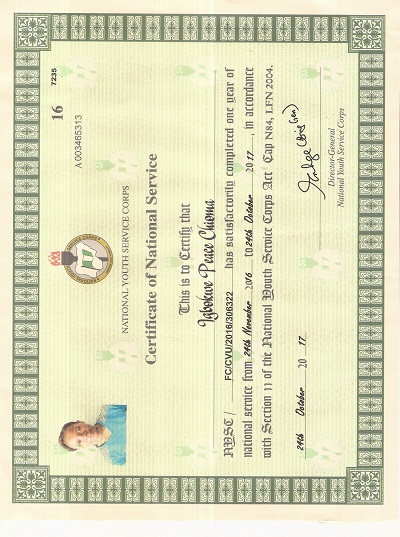 16
7235
A 003465313
NATIONAL YOUTH SERVICE CORPS
Certificate of National Service
This is to Certify that
Igbokwe Peace Chioma
NYSC/ FC/CVU/2016/306322 has satisfactorily completed one year of
national service from 29th November 2016 to 24th October 2017, in accordance
with Section 11 of the National Youth Service Corps Act Cap N84, LFN 2004.
24th October 2017
Director-General
National Youth Service Corps